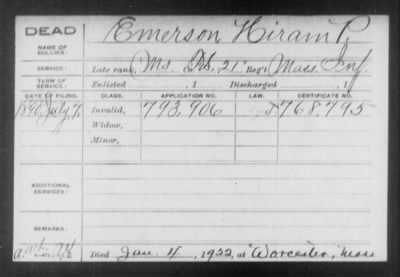 DEAD
Emerson Hiram P.
NAME OF SOLDIER:
SERVICE: Late rank, Ms. Co. 21" Reg't Mass. Inf.
TERM OF SERVICE: Enlisted , 1 Discharged , 1
DATE OF FILING. CLASS. APPLICATION NO. LAW. CERTIFICATE NO.
July 7, Invalid, 793,906 768,795
Widow,
Minor,
ADDITIONAL SERVICES:
REMARKS:
Died Jan. 4, 1922, at Worcester, Mass